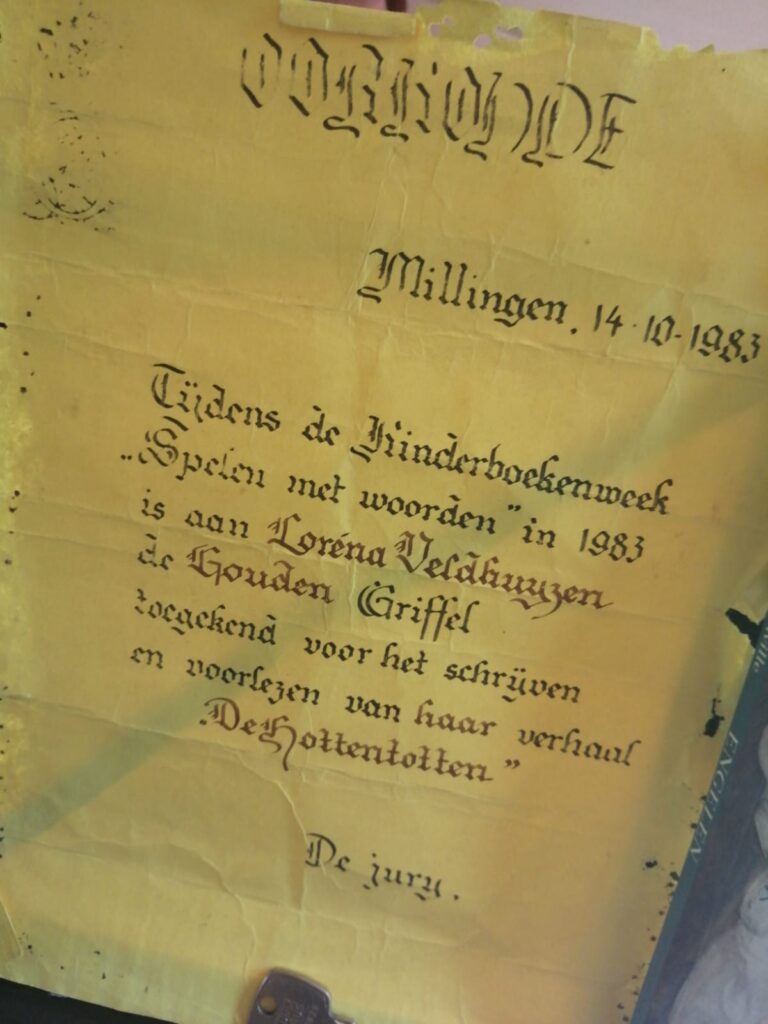 OORKONDE
Millingen, 14-10-1983
Tijdens de Kinderboekenweek
„Spelen met woorden” in 1983
is aan Loréna Veldhuyzen
de Gouden Griffel
toegekend voor het schrijven
en voorlezen van haar verhaal
„De Hottentotten”
De jury.
ENGELEN